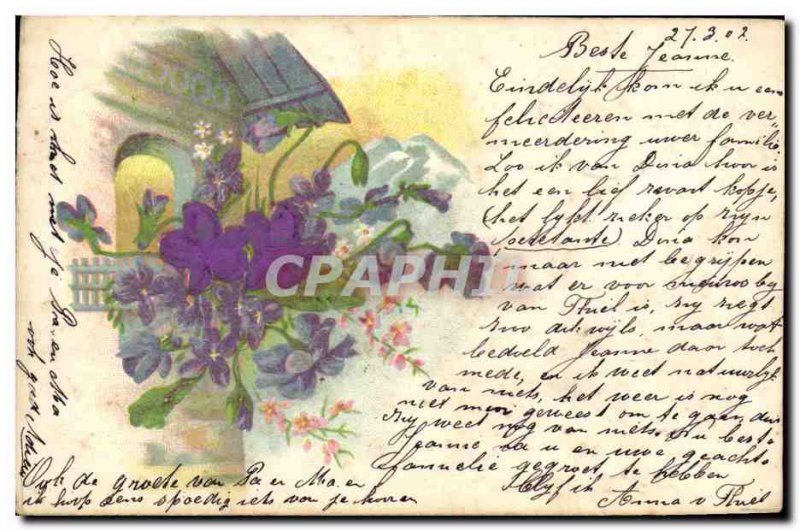 27.3.02
Beste Jeanne.
Eindelijk kom ik u een
feliciteeren met de ver„
meerdering uwer familie.
Zoo ik van Dina hoor is
het een lief zwart kopje,
(het lijkt zeker op zijn
peettante) Dina kon
maar niet begrijpen
wat er voor nieuws by
van Thiel is, zy zegt
zoo dikwijls, maar wat
bedoeld Jeanne daar toch
mede, en ik weet natuurlijk
van niets, het weer is nog
niet mooi geweest om te gaan, dus
zy weet nog van niets. Nu beste
Jeanne na u en uwe geachte
familie gegroet te hebben
Blyf ik Anna v Thiel
Ook de groete van Pa en Ma. en
ik hoop eens spoedig iets van je hooren
Hoe is het met je Pa. en Ma
ook groet
CPAPHIL